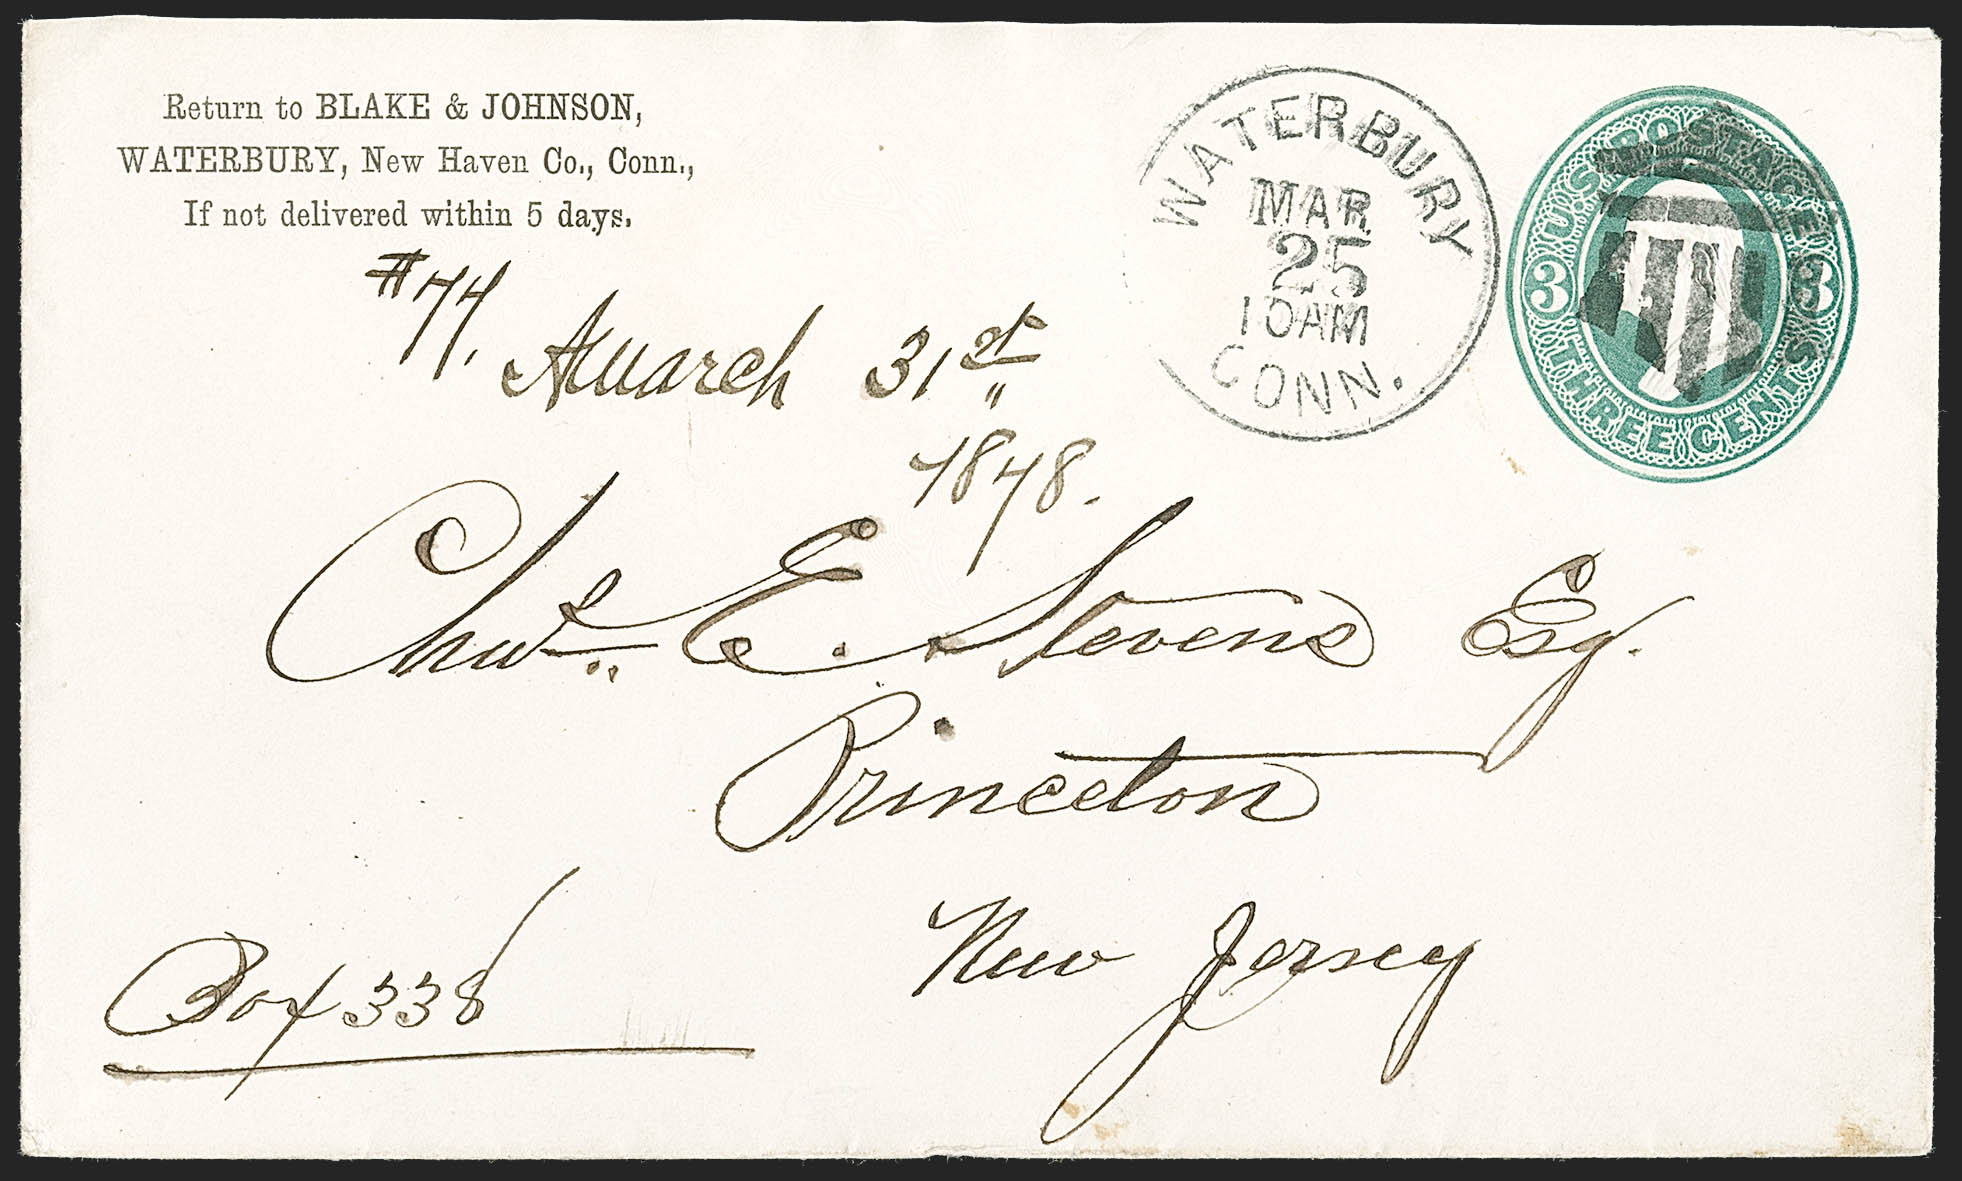 Return to BLAKE & JOHNSON,
WATERBURY, New Haven Co., Conn.,
If not delivered within 5 days.
WATERBURY
MAR
25
10AM
CONN.
U.S. POSTAGE
3 3
THREE CENTS
#74, March 31st
1878.
Chas. E. Stevens Esq.
Princeton
New Jersey
Box 338